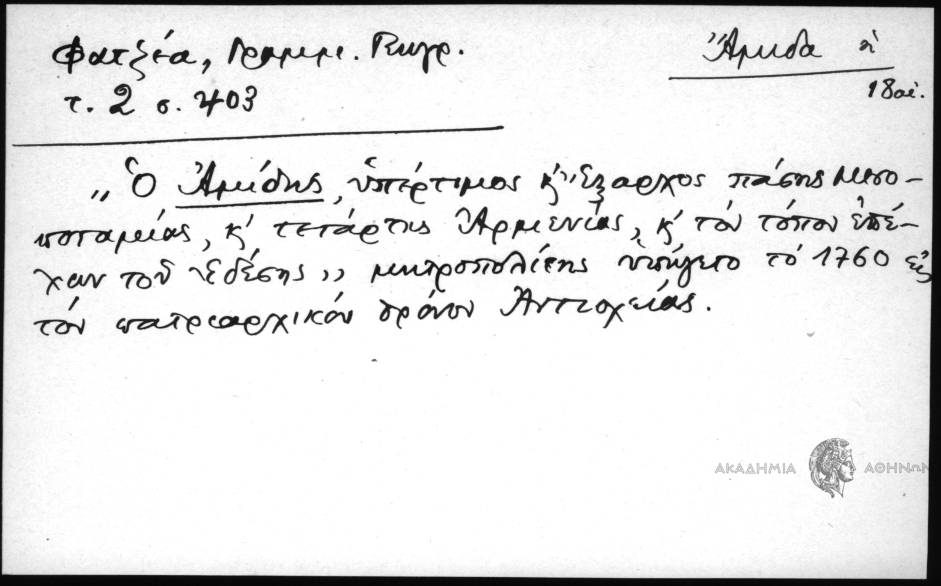 Φατζέα, Γραμμ. Γεωγρ.
τ. 2 σ. 403
Ἄμιδα ἡ
18 αἰ.
„Ὁ Ἀμίδης, ὑπέρτιμος κ' Ἔξαρχος πάσης Μεσο-
ποταμίας, κ' τετάρτης Ἀρμενίας, κ' τὸν τόπον ἐπέ-
χων τοῦ Ἐδέσης„ μητροπολίτης ὑπήγετο τὸ 1760 εἰς
τὸν πατριαρχικὸν θρόνον Ἀντιοχείας.
ΑΚΑΔΗΜΙΑ ΑΘΗΝΩΝ